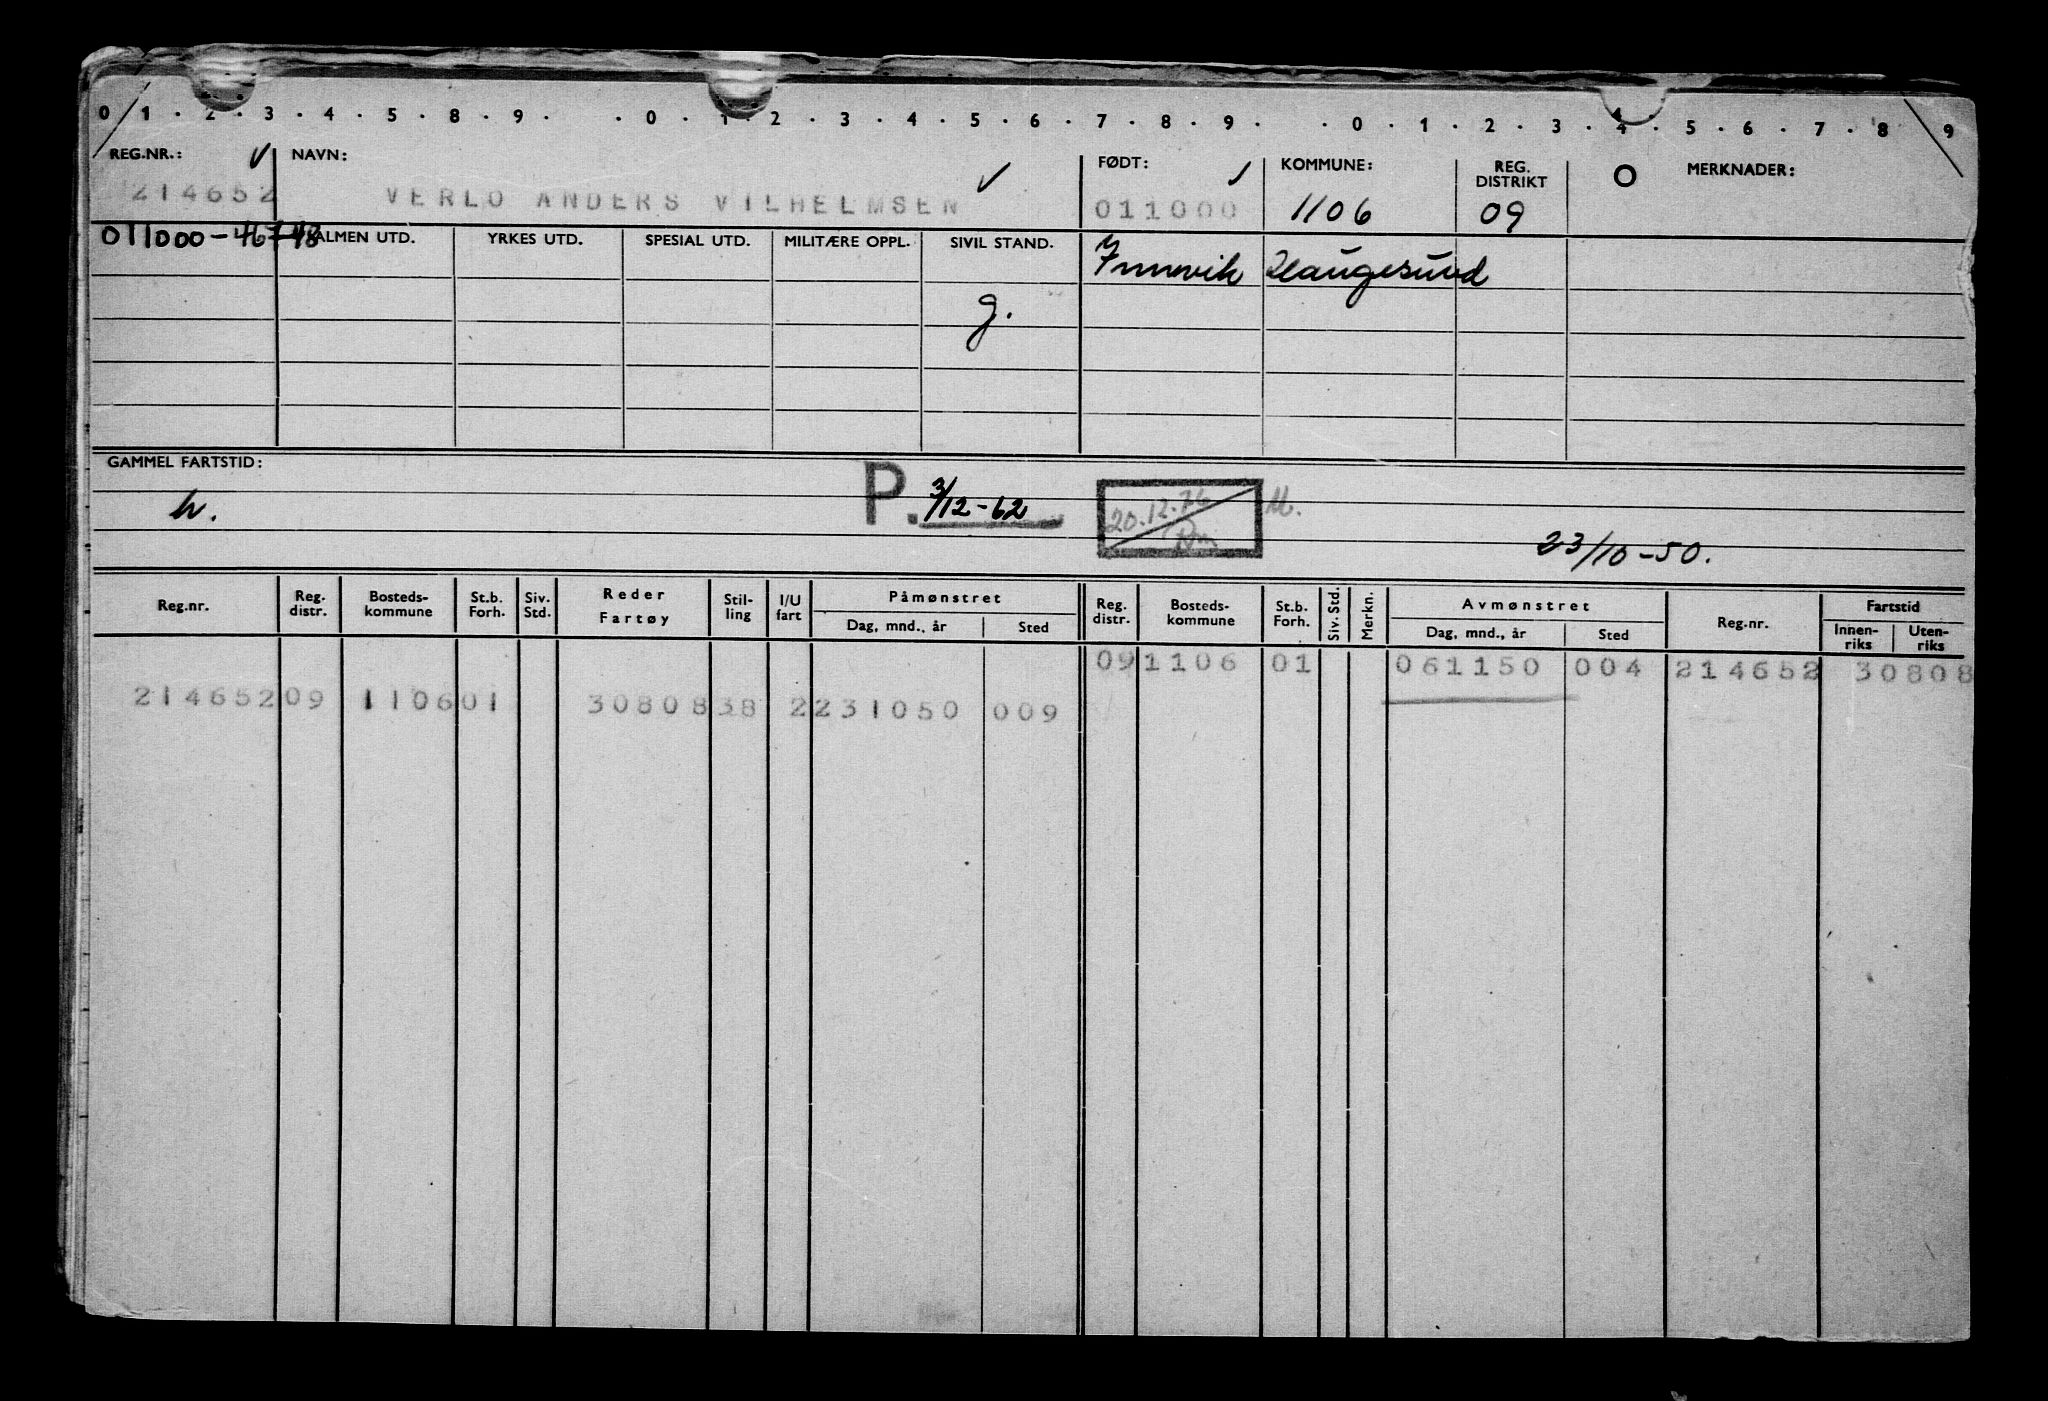 0 1 . 2 . 3 . 4 . 5 . 8 . 9 . . 0 . 1 . 2 . 3 . 4 . 5 . 6 . 7 . 8 . 9 . . 0 . 1 . 2 . 3 . 4 . 5 . 6 . 7 . 8 9
REG.NR.: NAVN: FØDT: KOMMUNE: REG. DISTRIKT O MERKNADER:
214652 VERLO ANDERS VILHELMSEN 011000 1106 09
011000-46748 ALMEN UTD. YRKES UTD. SPESIAL UTD. MILITÆRE OPPL. SIVIL STAND. Innvik Haugesund
g.
GAMMEL FARTSTID:
h. P. 3/12-62 20.12.76 M.
23/10-50.
Reg.nr. Reg. distr. Bosteds-kommune St.b. Forh. Siv. Std. Reder Fartøy Stil-ling I/U fart Påmønstret Dag, mnd., år Sted Reg. distr. Bosteds-kommune St.b. Forh. Siv. Std. Merkn. Avmønstret Dag, mnd., år Sted Reg.nr. Fartstid Innen-riks Uten-riks
09 1106 01 061150 004 214652 30808
214652 09 1106 01 30808 38 2 231050 009